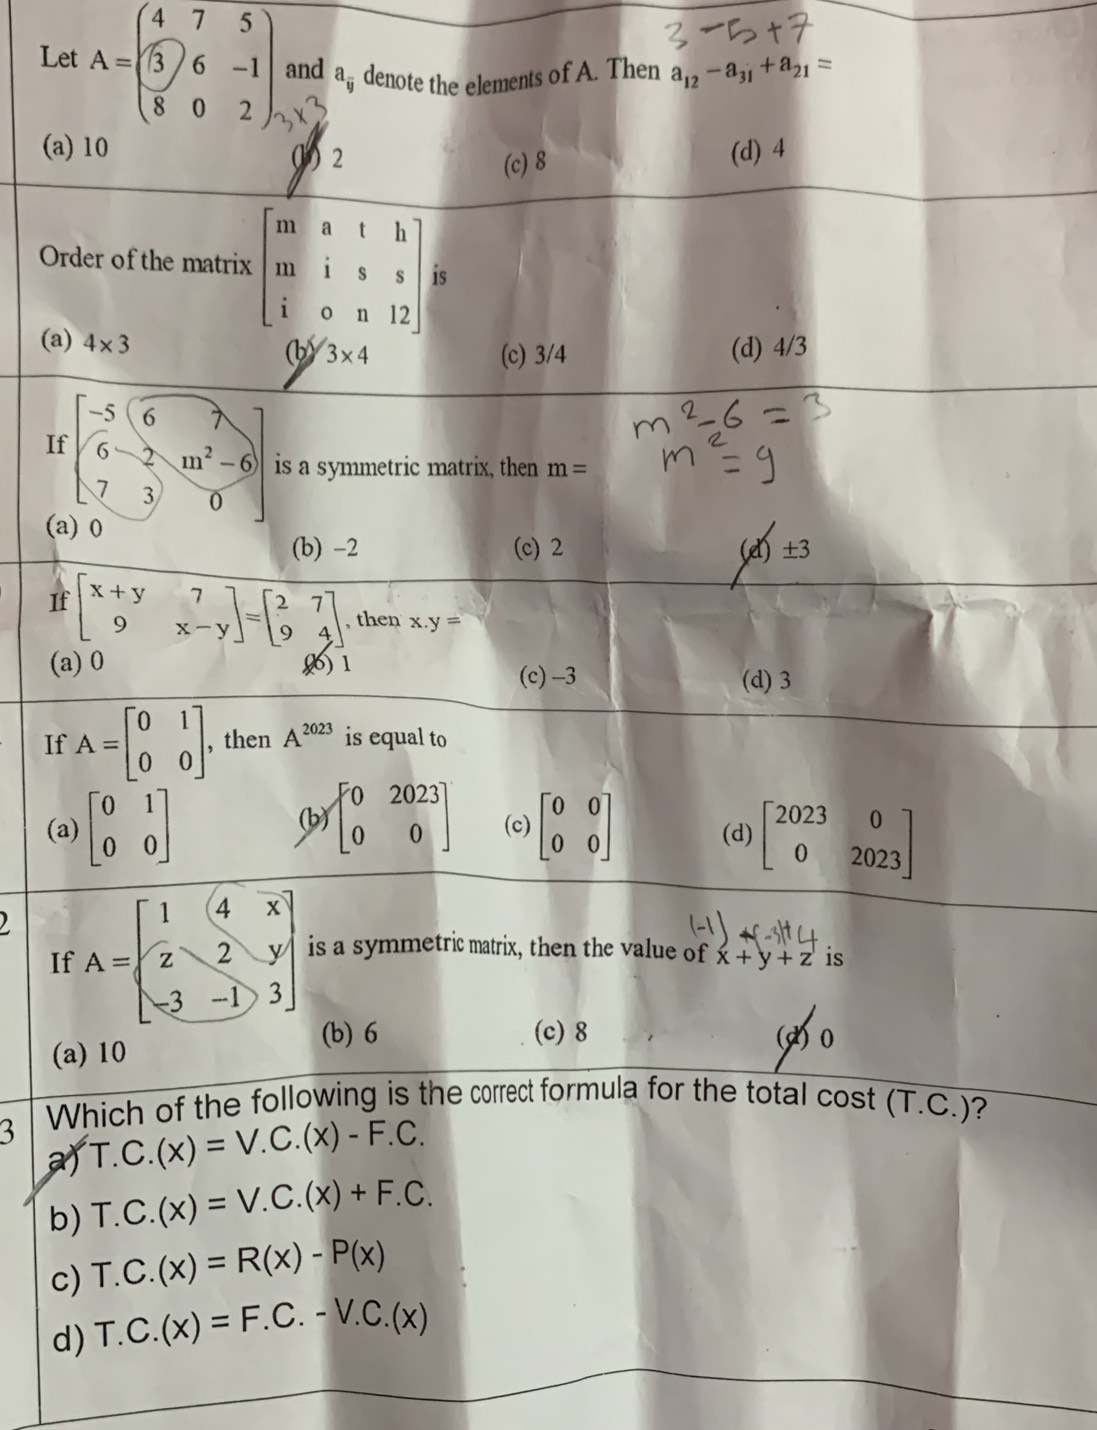 3 - 5 + 7
Let A = (4 7 5
3 6 -1
8 0 2) 3×3 and aᵢⱼ denote the elements of A. Then a₁₂ - a₃₁ + a₂₁ =
(a) 10 (b) 2 (c) 8 (d) 4
Order of the matrix [m a t h
m i s s
i o n 12] is
(a) 4×3 (b) 3×4 (c) 3/4 (d) 4/3
m² - 6 = 3
m² = 9
If [-5 6 7
6 2 m² - 6
7 3 0] is a symmetric matrix, then m =
(a) 0 (b) -2 (c) 2 (d) ±3
If [x + y 7
9 x - y] = [2 7
9 4], then x.y =
(a) 0 (b) 1 (c) -3 (d) 3
If A = [0 1
0 0], then A²⁰²³ is equal to
(a) [0 1
0 0] (b) [0 2023
0 0] (c) [0 0
0 0] (d) [2023 0
0 2023]
2
(-1) + (-3) + 4
If A = [1 4 x
z 2 y
-3 -1 3] is a symmetric matrix, then the value of x + y + z is
(a) 10 (b) 6 (c) 8 (d) 0
3 Which of the following is the correct formula for the total cost (T.C.)?
a) T.C.(x) = V.C.(x) - F.C.
b) T.C.(x) = V.C.(x) + F.C.
c) T.C.(x) = R(x) - P(x)
d) T.C.(x) = F.C. - V.C.(x)